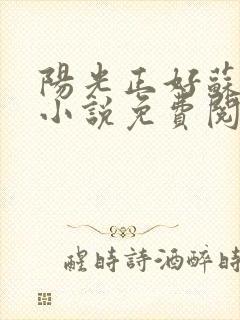 陽光正好蘇
小說免費閱
醒時詩酒醉時